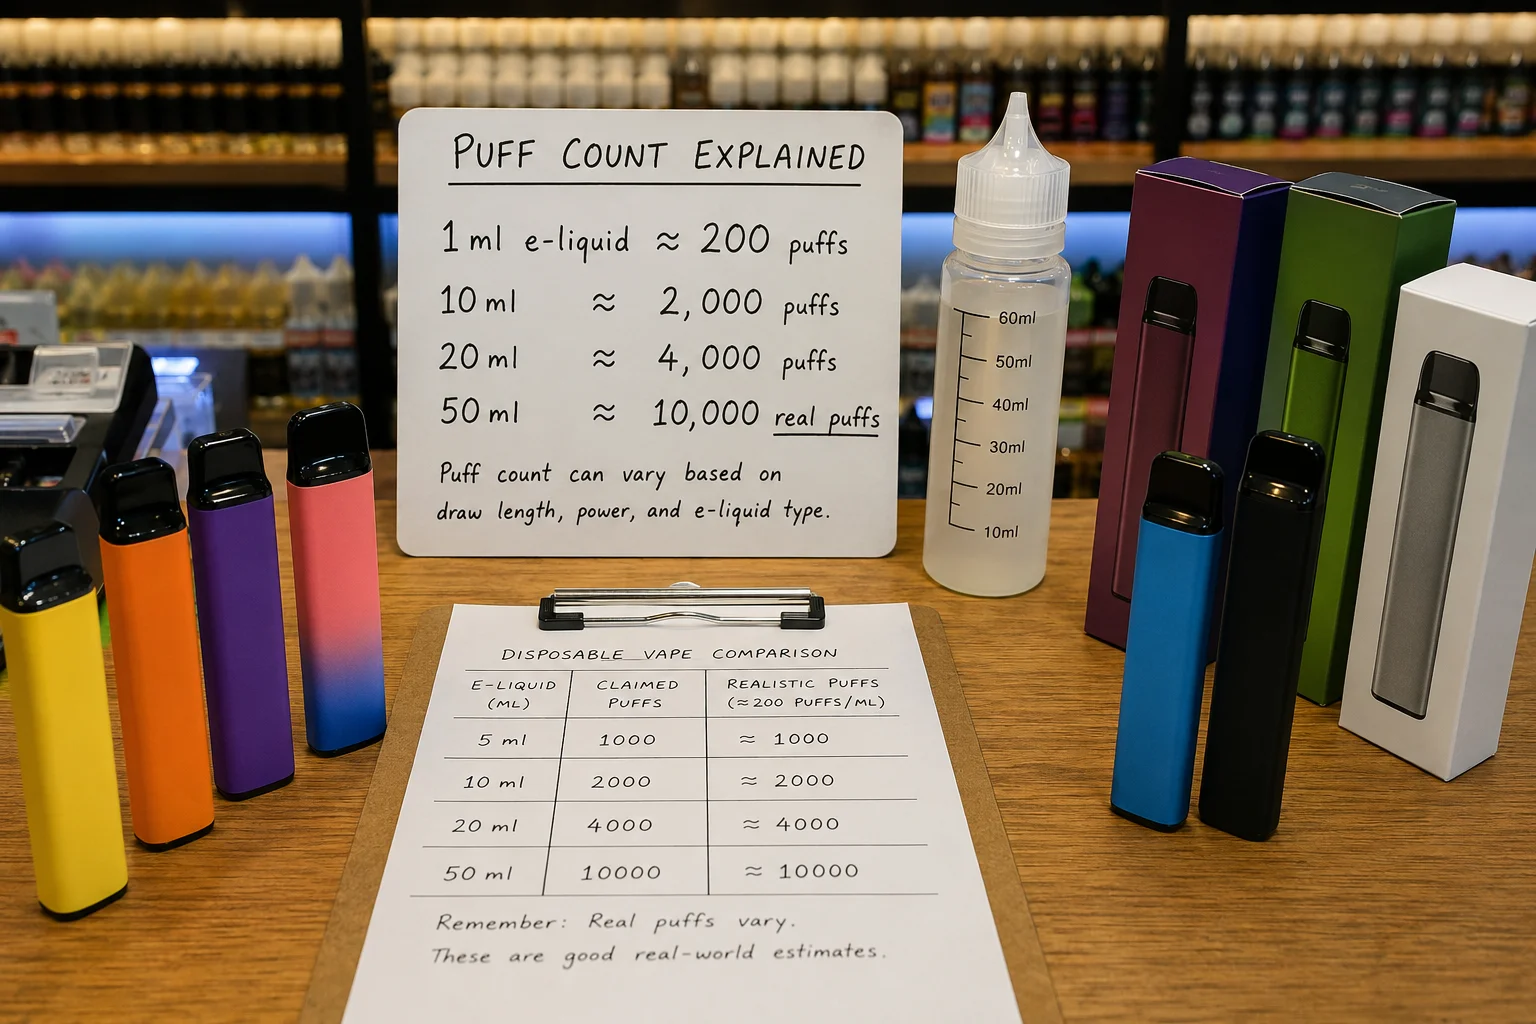 PUFF COUNT EXPLAINED
1 ml e-liquid ≈ 200 puffs
10 ml ≈ 2,000 puffs
20 ml ≈ 4,000 puffs
50 ml ≈ 10,000 real puffs
Puff count can vary based on
draw length, power, and e-liquid type.
60ml
50ml
40ml
30ml
20ml
10ml
DISPOSABLE VAPE COMPARISON
E-LIQUID (ML) CLAIMED PUFFS REALISTIC PUFFS (≈200 PUFFS/ML)
5 ml 1000 ≈ 1000
10 ml 2000 ≈ 2000
20 ml 4000 ≈ 4000
50 ml 10000 ≈ 10000
Remember: Real puffs vary.
These are good real-world estimates.